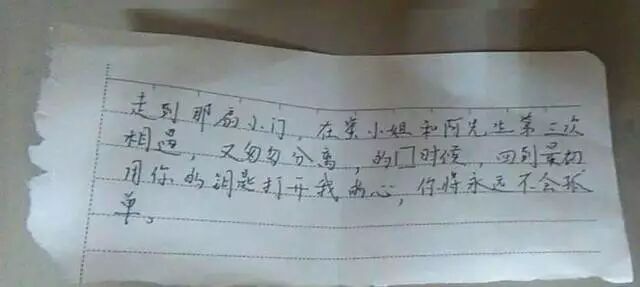 走到那扇小门，在吴小姐和阿先生第三次
相遇，又匆匆分离，的门时候，回到最初
用你的钥匙打开我的心，你将永远不会孤
单。